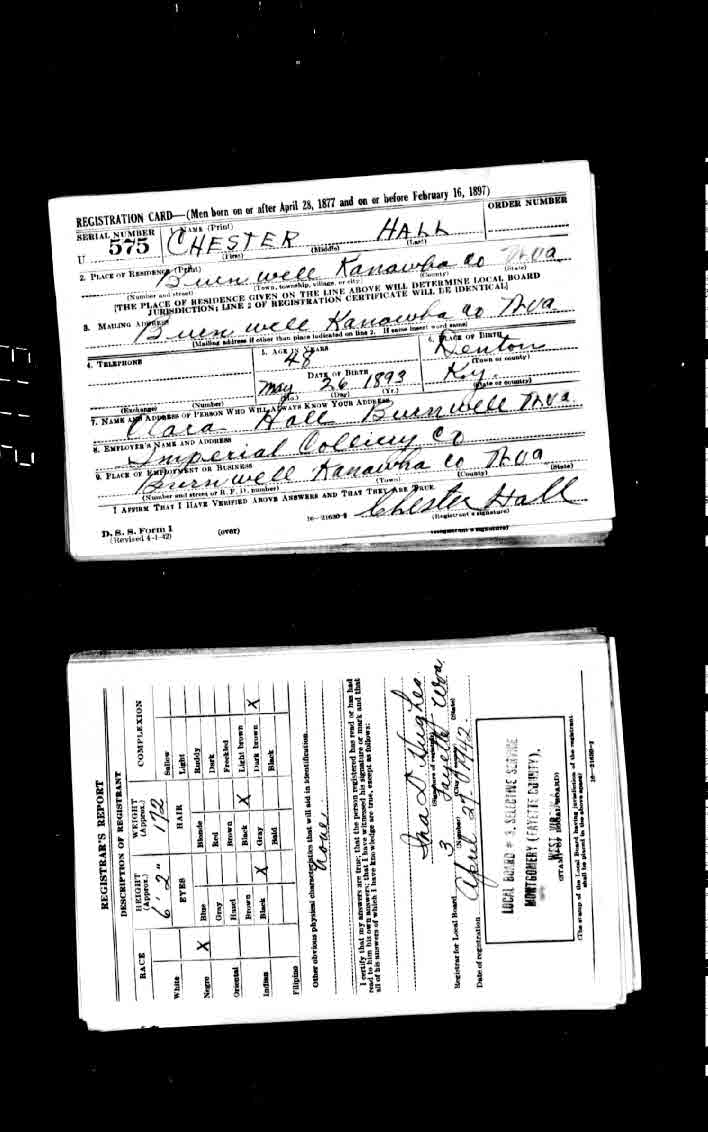 REGISTRATION CARD—(Men born on or after April 28, 1877 and on or before February 16, 1897)
SERIAL NUMBER 1. NAME (Print) ORDER NUMBER
U 575 CHESTER HALL
(First) (Middle) (Last)
2. PLACE OF RESIDENCE (Print)
Burnwell Kanawha co W.va
(Number and street) (Town, township, village, or city) (County) (State)
[THE PLACE OF RESIDENCE GIVEN ON THE LINE ABOVE WILL DETERMINE LOCAL BOARD
JURISDICTION; LINE 2 OF REGISTRATION CERTIFICATE WILL BE IDENTICAL]
3. MAILING ADDRESS
Burnwell Kanawha co W.va
[Mailing address if other than place indicated on line 2. If same insert word same]
4. TELEPHONE 5. AGE IN YEARS 6. PLACE OF BIRTH
48 Denton
DATE OF BIRTH (Town or county)
May 26 1893 Ky.
(Exchange) (Number) (Mo.) (Day) (Yr.) (State or country)
7. NAME AND ADDRESS OF PERSON WHO WILL ALWAYS KNOW YOUR ADDRESS
Clara Hall Burnwell W.va
8. EMPLOYER'S NAME AND ADDRESS
Imperial Colliery Co
9. PLACE OF EMPLOYMENT OR BUSINESS
Burnwell Kanawha co W.va
(Number and street or R. F. D. number) (Town) (County) (State)
I AFFIRM THAT I HAVE VERIFIED ABOVE ANSWERS AND THAT THEY ARE TRUE.
Chester Hall
D. S. S. Form 1 (over) 16—21630-2 (Registrant's signature)
(Revised 4-1-42) (Registrant's signature)
REGISTRAR'S REPORT
DESCRIPTION OF REGISTRANT
RACE HEIGHT (Approx.) WEIGHT (Approx.) COMPLEXION
6' 2" 172
White EYES HAIR Sallow
Light
Negro X Blue Blonde Ruddy
Gray Red Dark
Oriental Hazel Brown Freckled
Brown Black X Light brown
Indian Black X Gray Dark brown X
Bald Black
Filipino
Other obvious physical characteristics that will aid in identification
none
I certify that my answers are true; that the person registered has read or has had
read to him his own answers; that I have witnessed his signature or mark and that
all of his answers of which I have knowledge are true, except as follows:
Ina D. Hughes
(Signature of registrar)
Registrar for Local Board 3 Fayette W.va
(Number) (City or county) (State)
Date of registration April 27, 1942.
LOCAL BOARD # 3, SELECTIVE SERVICE
MONTGOMERY (FAYETTE COUNTY),
WEST VIRGINIA
(STAMP OF LOCAL BOARD)
(The stamp of the Local Board having jurisdiction of the registrant
shall be placed in the above space)
16—21630-2